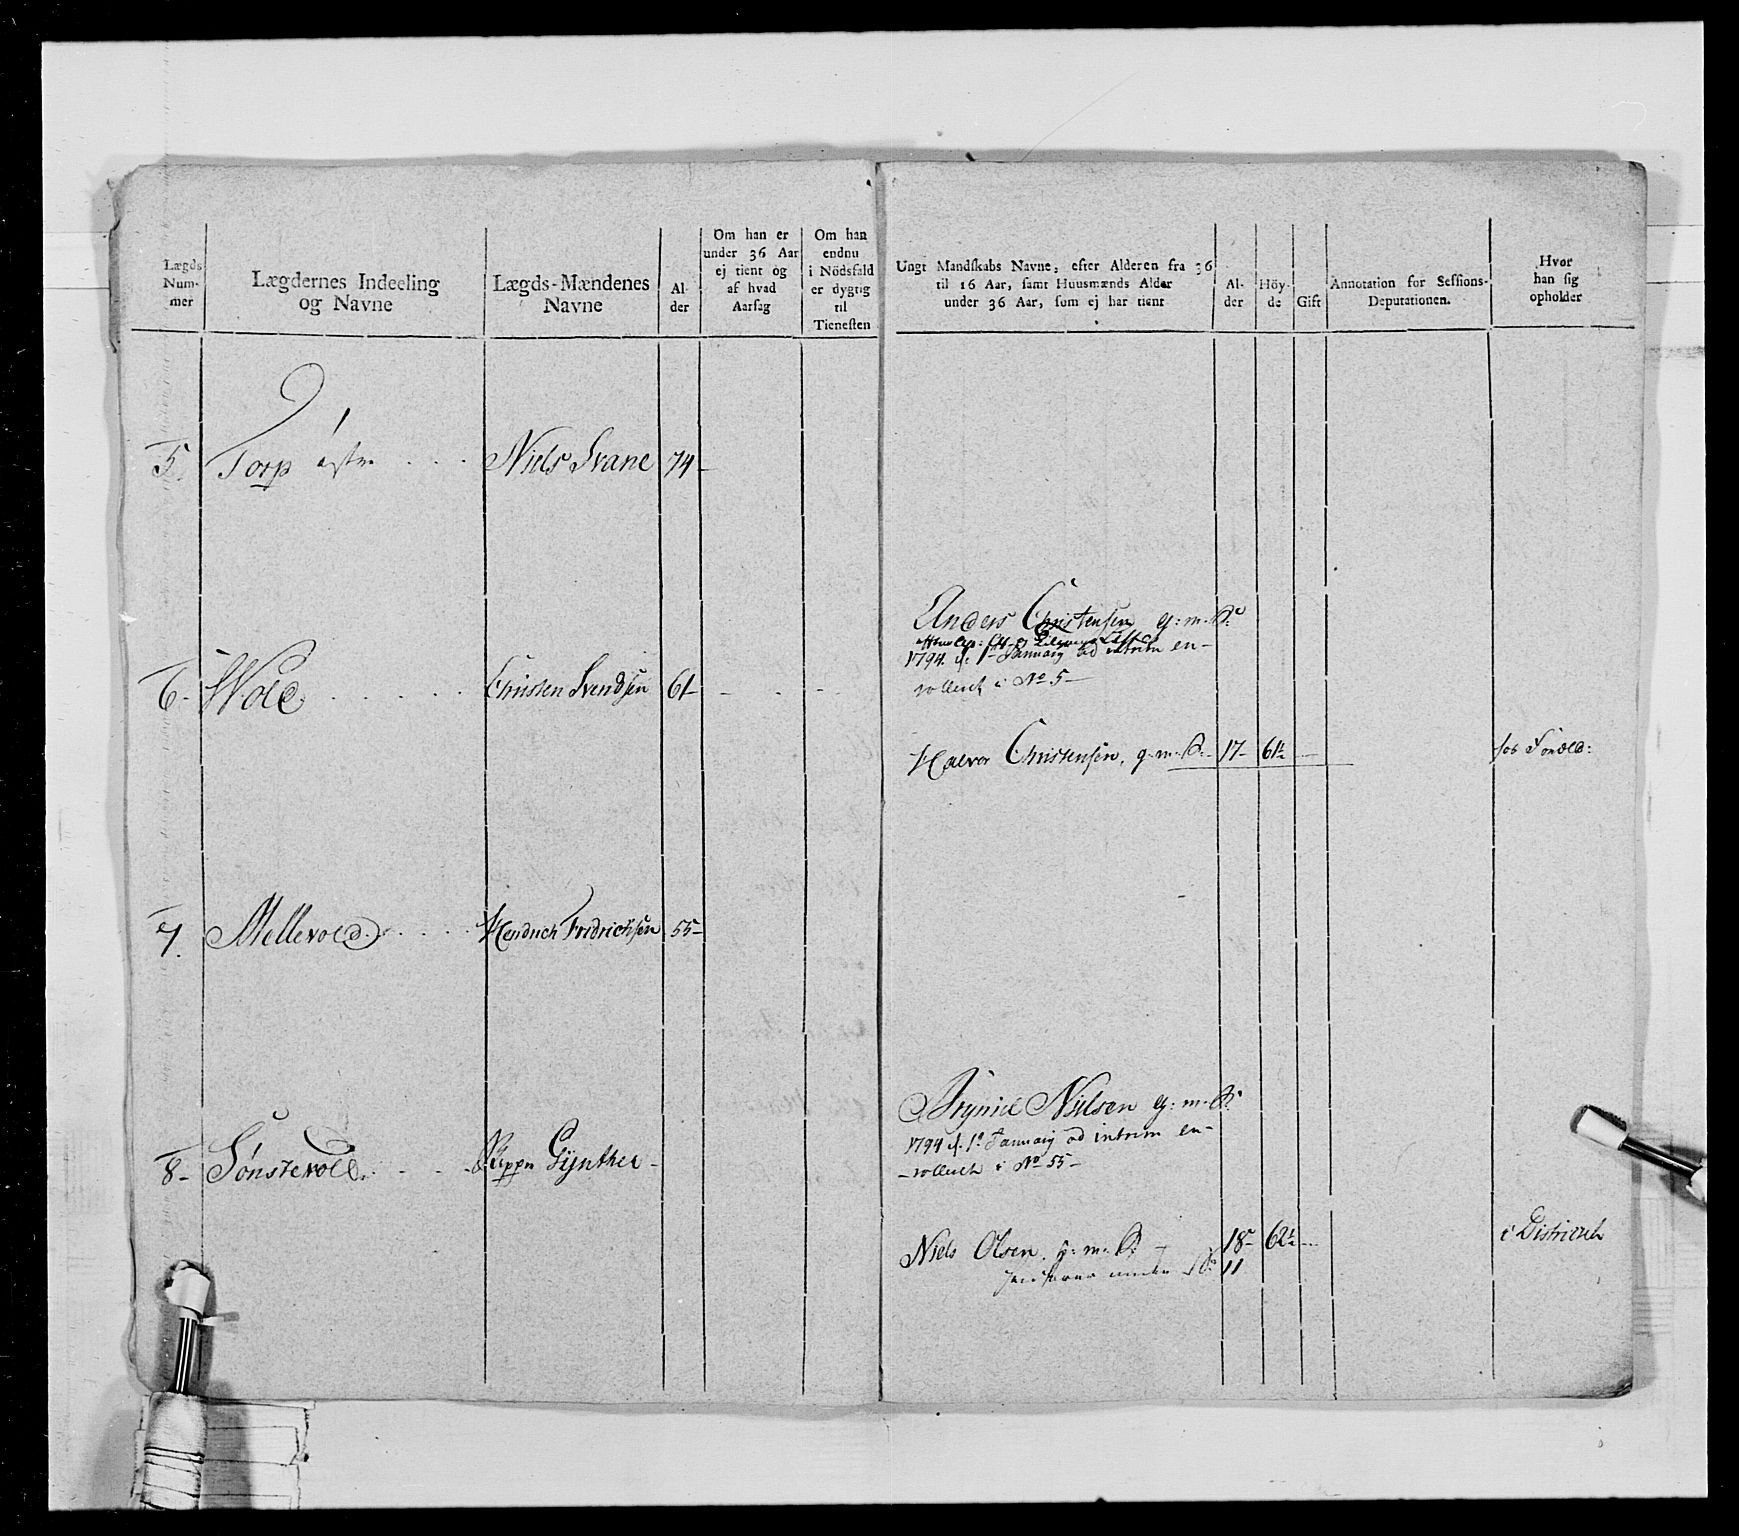 Lægds Num- mer
Lægdernes Indeeling og Navne
Lægds-Mændenes Navne
Al- der
Om han er under 36 Aar ej tient og af hvad Aarsag
Om han endnu i Nödsfald er dygtig til Tienesten
Ungt Mandskabs Navne, efter Alderen fra 36 til 16 Aar, samt Huusmænds Alder under 36 Aar, som ej har tient
Al- der
Höy- de
Gift
Annotation for Sessions- Deputationen.
Hvor han sig opholder
5. Torp østre Niels Svane 74
Anders Christensen g: m: S:
1794 d: 1te Januarij ad interim en-
rolleret i No 5
6 Wold Christen Svendsen 61
Halvor Christensen, g: m: S: 17 61½ hos Foræld:
7. Mellevold Hendrich Fridrichsen 55
Brynild Nielsen g: m: S:
1794 d. 1te Januarij ad interim en-
rolleret i No 55
8 Sønstevold Gynther
Niels Olsen g: m: S: 18 62½ i Districtet
under No 11